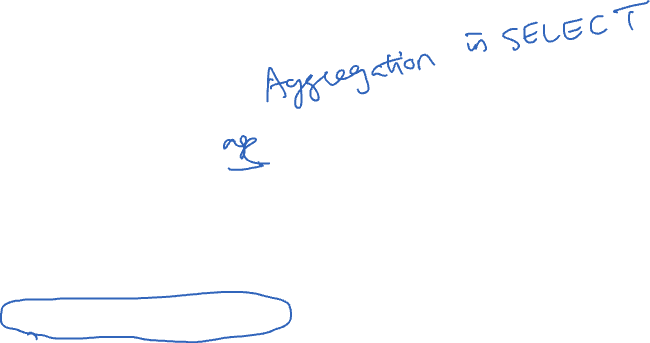 Aggregation in SELECT
age